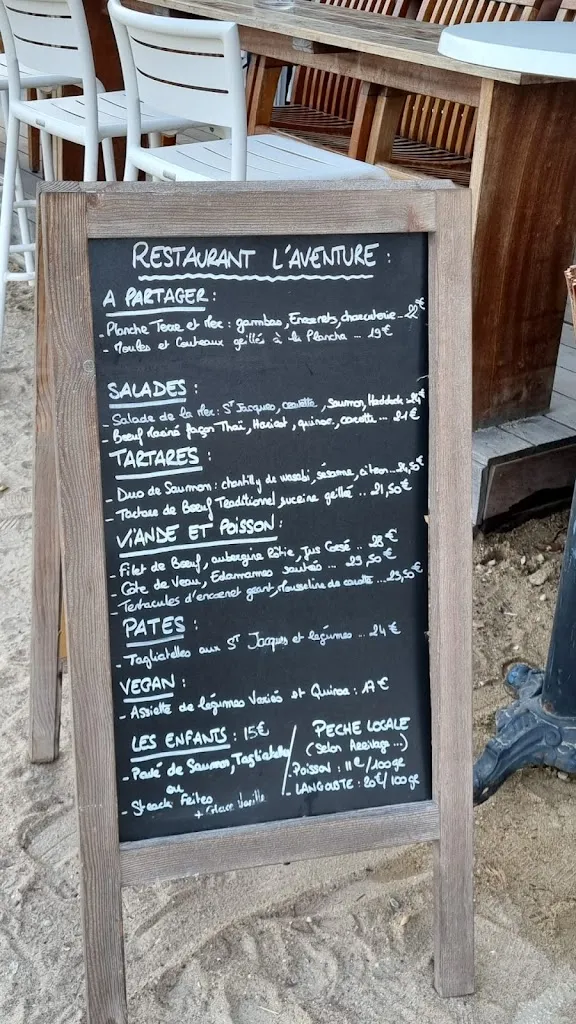 RESTAURANT L'AVENTURE :
A PARTAGER :
- Planche Terre et Mer : gambas, Encornets, charcuterie - 22€
- Moules et Couteaux grillés à la Plancha ... 19€
SALADES :
- Salade de la Mer : St Jacques, crevette, Saumon, Haddock
- Bœuf Mariné façon Thaï, Haricot, quinoa, carotte ... 21€
TARTARES :
- Duo de Saumon : chantilly de wasabi, sésame, citron
- Tartare de Bœuf Traditionnel, sucrine grillée .. 21,50€
VIANDE ET POISSON :
- Filet de Bœuf, aubergine Rôtie, Jus Corsé .. 28€
- Côte de Veau, Edamames sautés ... 29,50€
- Tentacules d'encornet géant, Mousseline de carotte ... 23,50€
PATES :
- Tagliatelles aux St Jacques et légumes ... 24€
VEGAN :
- Assiette de légumes Variés et Quinoa : 17€
LES ENFANTS : 15€
- Pavé de Saumon, Tagliatelle
ou
- Steack Frites
+ Glace Vanille
PECHE LOCALE
(Selon Arrivage...)
- POISSON : 11€/100gr
- LANGOUSTE : 20€/100gr